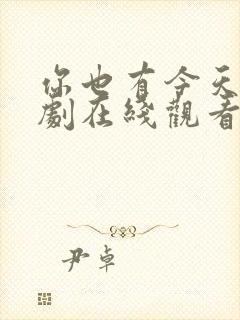 你也有今天
劇在綫觀看
尹卓